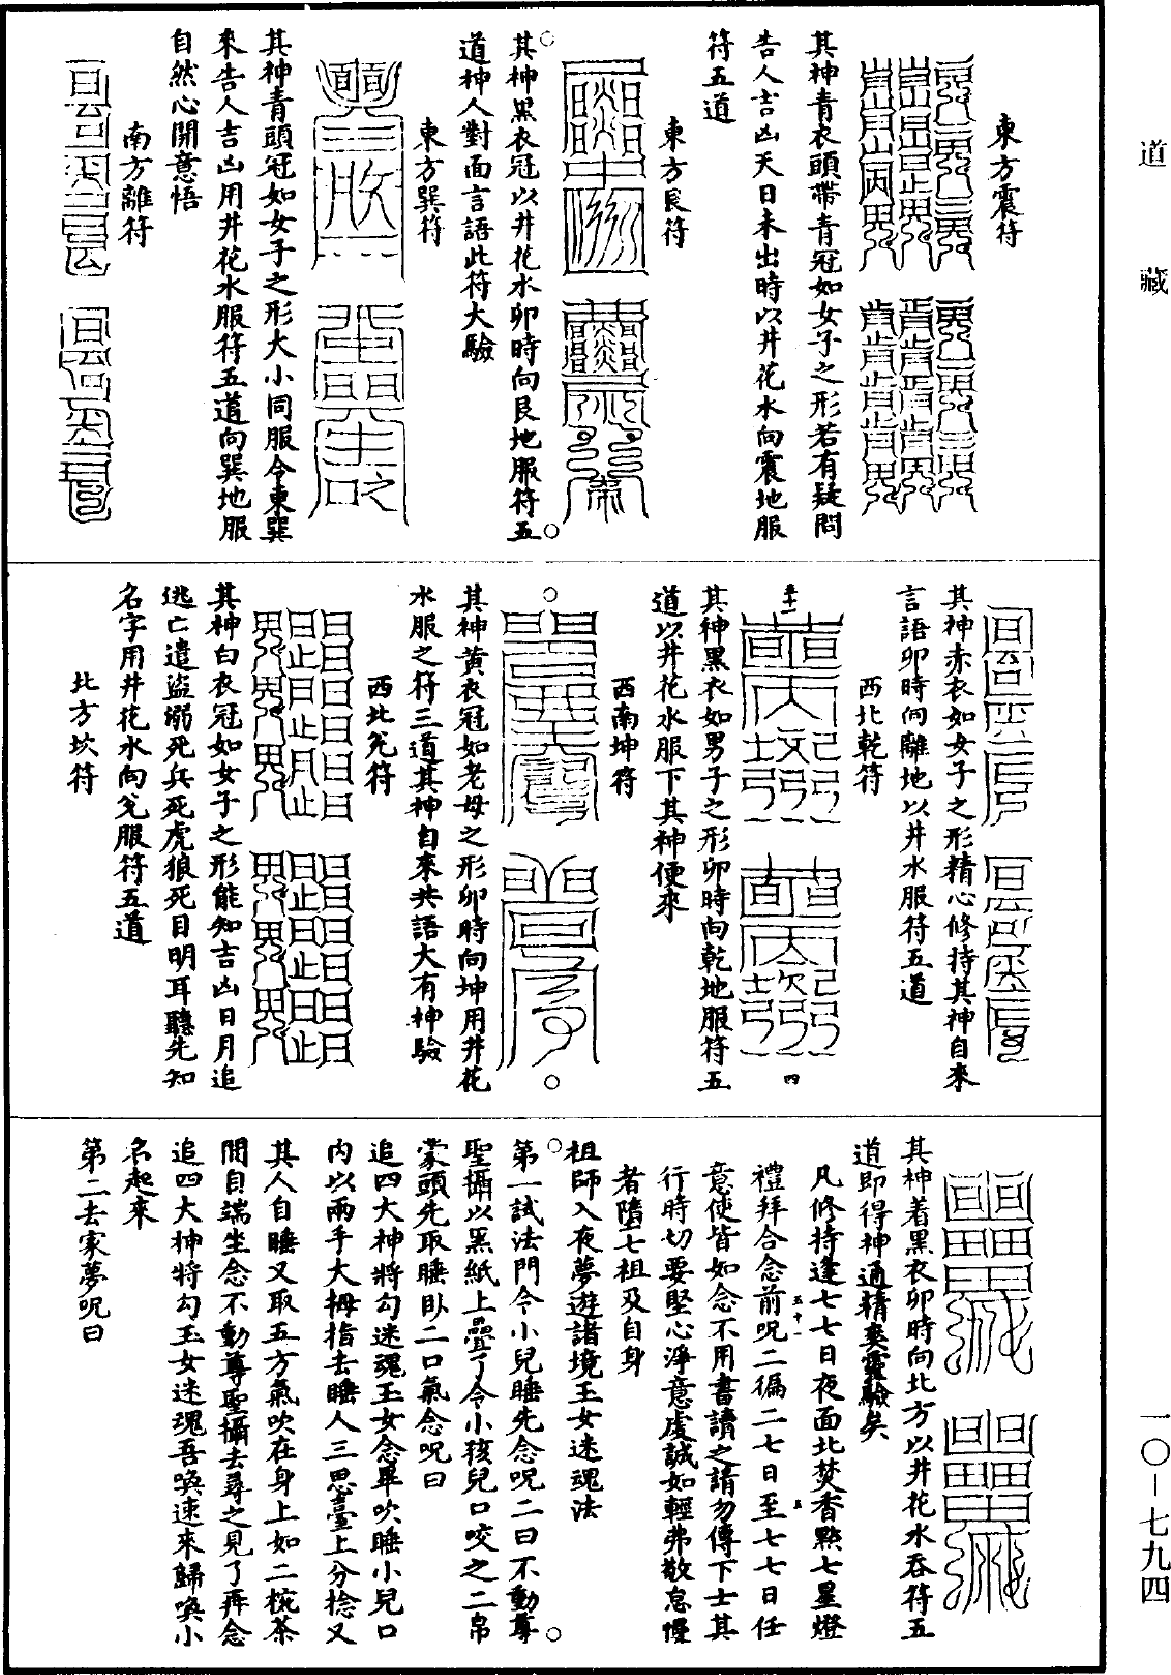 道藏
東方震符
其神青衣頭帶青冠如女子之形若有疑問
告人吉凶天日未出時以井花水向震地服
符五道
東方艮符
其神黑衣冠以井花水卯時向艮地服符五
道神人對面言語此符大驗
東方巽符
其神青頭冠如女子之形大小同服令東巽
來告人吉凶用井花水服符五道向巽地服
自然心開意悟
南方離符
其神赤衣如女子之形精心修持其神自來
言語卯時向離地以井水服符五道
西北乾符
五十一
四
其神黑衣如男子之形卯時向乾地服符五
道以井花水服下其神便來
西南坤符
其神黃衣冠如老母之形卯時向坤用井花
水服之符三道其神自來共語大有神驗
西北兌符
其神白衣冠如女子之形能知吉凶日月追
逃亡遣盜溺死兵死虎狼死目明耳聽先知
名字用井花水向兌服符五道
北方坎符
其神着黑衣卯時向北方以井花水吞符五
道即得神通精爽靈驗矣
凡修持逢七七日夜面北焚香點七星燈
禮拜合念前呪二徧二七日至七七日任
五十一
五
意使皆如念不用書讀之請勿傳下士其
行時切要堅心淨意虔誠如輕弗敬怠慢
者墮七祖及自身
祖師入夜夢遊諸境玉女迷魂法
第一試法門令小兒睡先念呪二曰不動尊
聖攝以黑紙上疊了令小孩兒口咬之二帛
蒙頭先取睡臥二口氣念呪曰
追四大神將勾迷魂玉女念畢吹睡小兒口
內以兩手大拇指去睡人三思臺上分捻又
其人自睡又取五方氣吹在身上如二椀茶
間自端坐念不動尊聖攝去尋之見了再念
追四大神將勾玉女迷魂吾喚速來歸喚小
名起來
第二去家夢呪曰
一〇－七九四